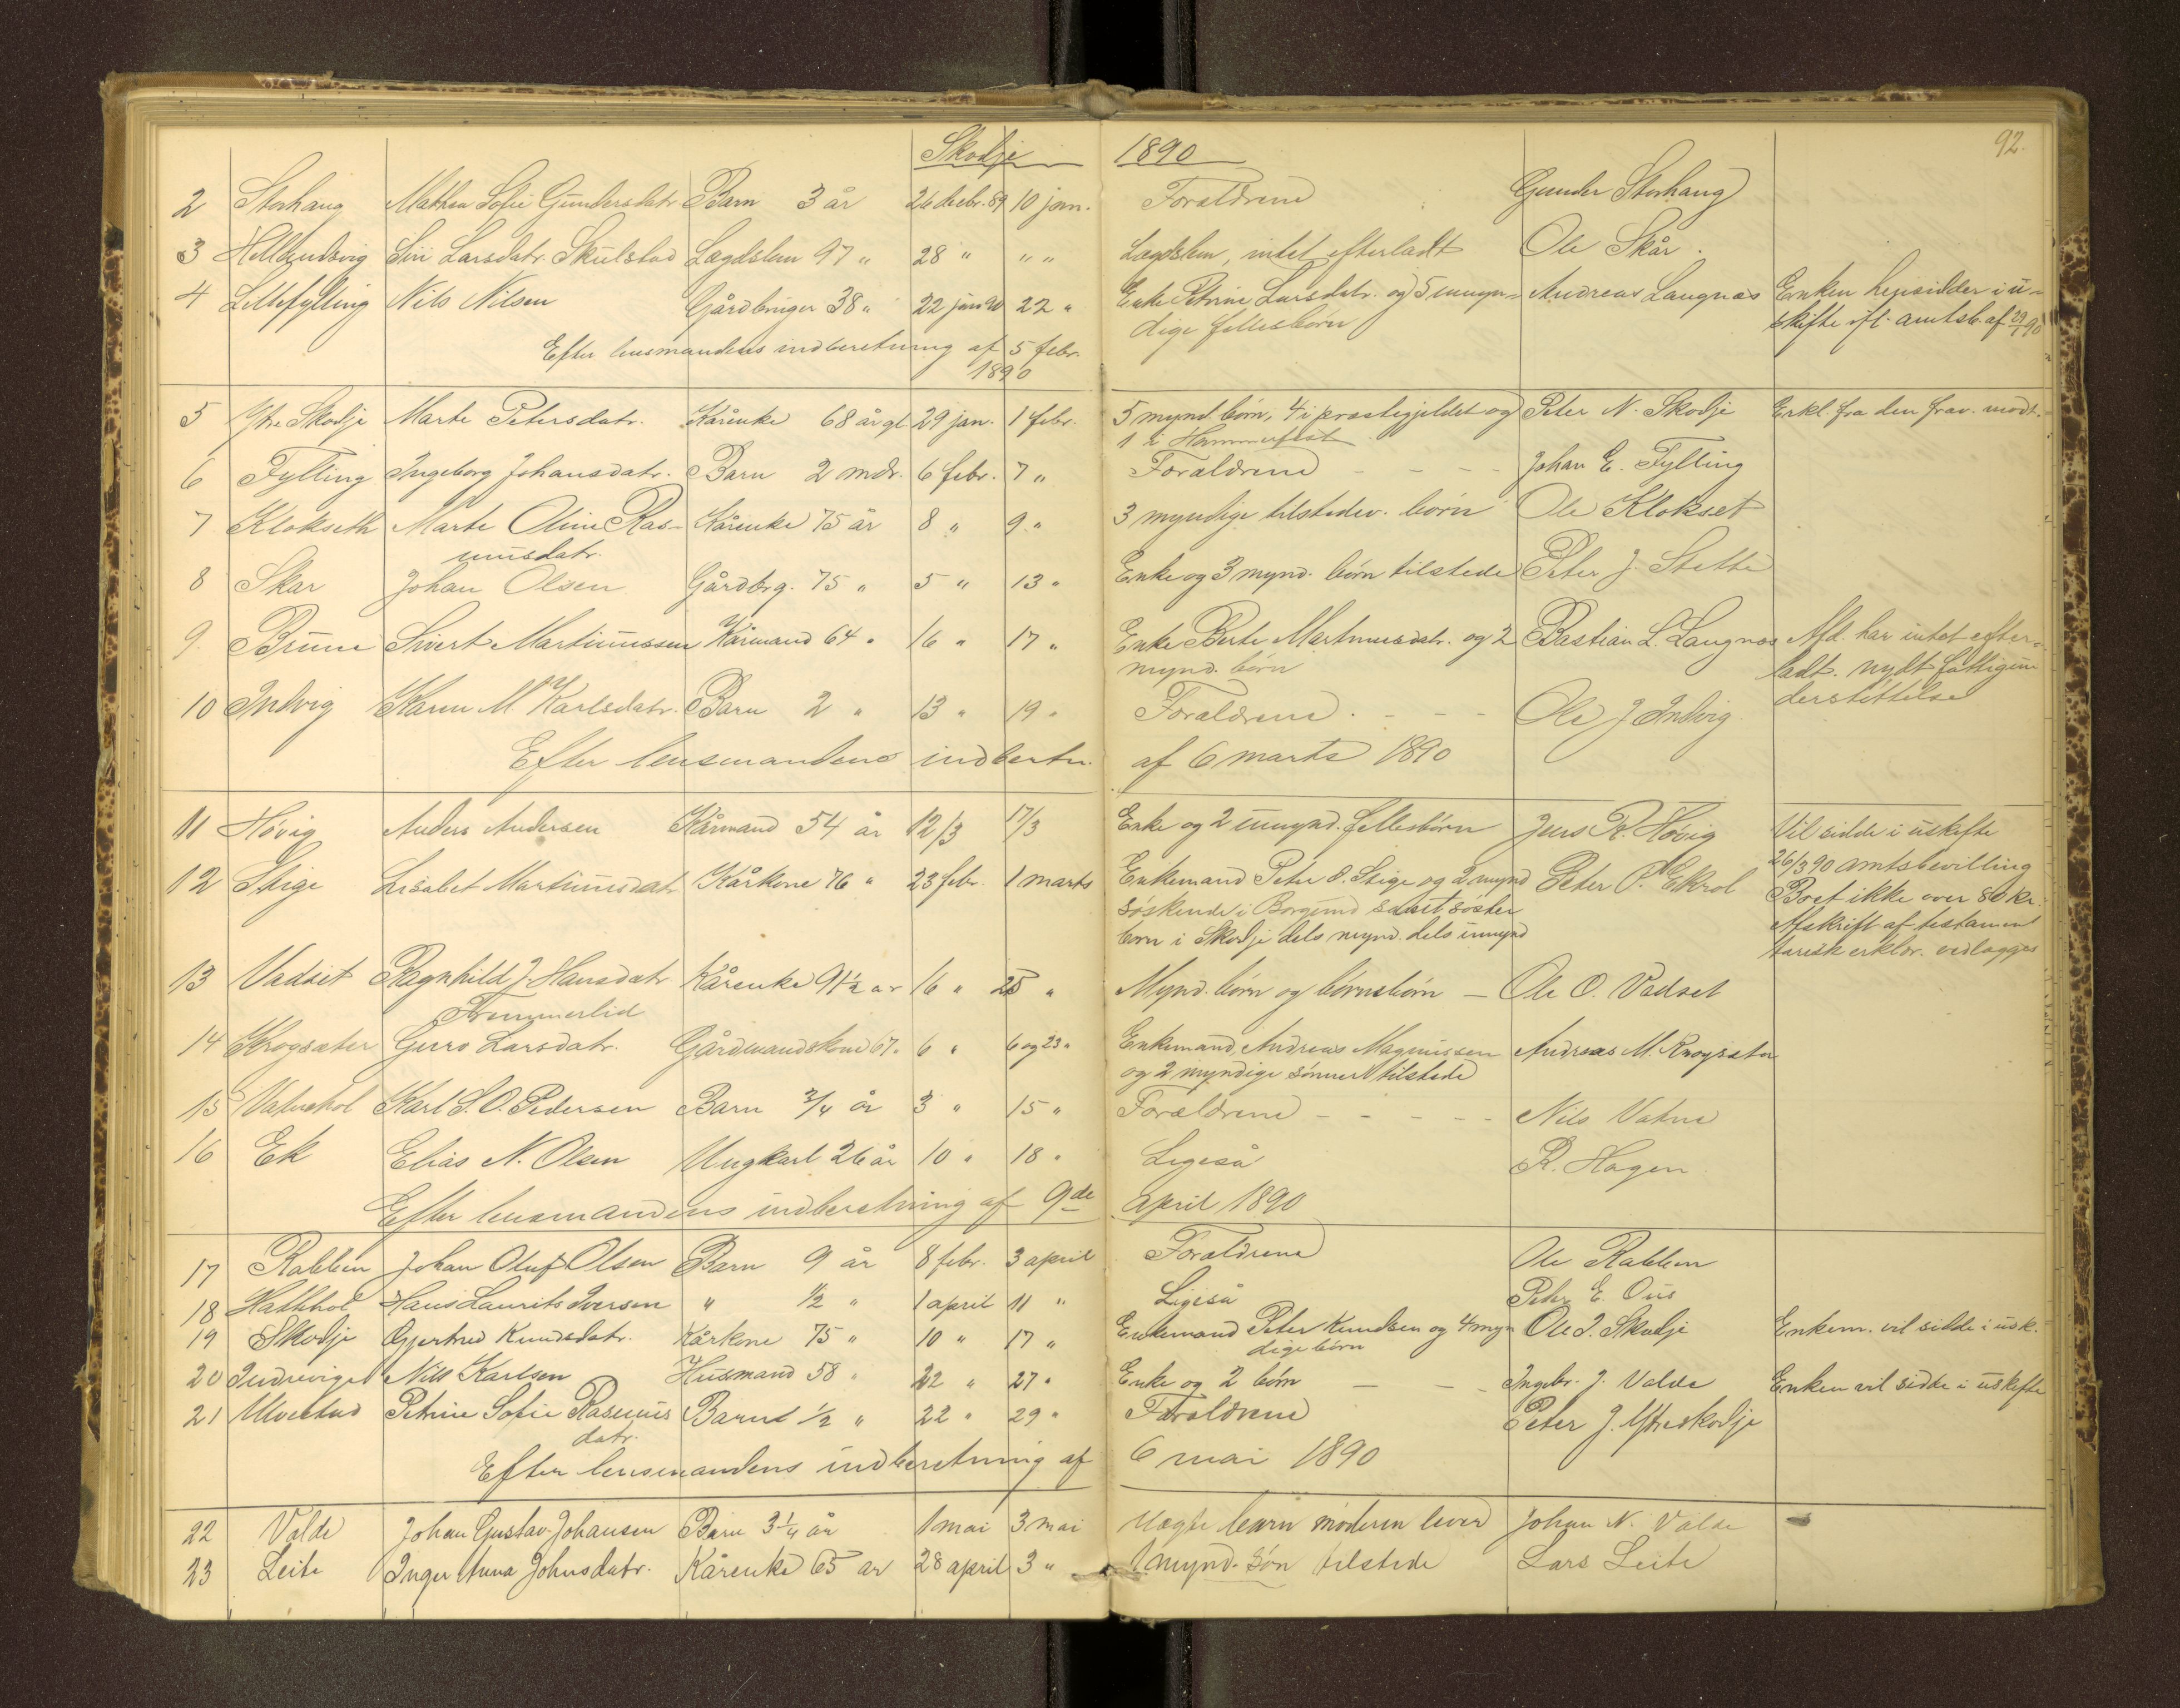 Skodje 1890 92.
2 Storhaug Mathea Sofie Gundersdatr Barn 3 år 26 decbr. 89 10 jan. Forældrene Gunder Storhaug
3 Hellandsvig Siri Larsdatr. Skulstad Lægdslem 97 " 28 " " " Lægdslem, intet efterladt Ole Skår.
4 Lillefylling Nils Nilsen Gårdbruger 38 " 22 jan 90 22 " Enke Petrine Larsdatr. og 5 umyn- Andreas Langnæs Enken hensidder i u-
dige fællesbørn skifte ifl. amtsb. af 29/1 90
Efter lensmandens indberetning af 5 febr.
1890
5 Ytre Skodje Marte Petersdatr. Kårenke 68 år gl. 29 jan. 1 febr. 5 mynd. børn, 4 i præstegjeldet og Peter N. Skodje Erkl. fra den frav. modt.
1 i Hammerfest
6 Fylling Ingeborg Johansdatr. Barn 2 mdr. 6 febr. 7 " Forældrene - - - Johan E. Fylling
7 Klokseth Marte Oline Ras- Kårenke 75 år 8 " 9 " 3 myndige tilstedev. børn Ole Klokset
musdatr.
8 Skar Johan Olsen Gårdbrg. 75 " 5 " 13 " Enke og 3 mynd. børn tilstede Peter J Stette
9. Brune Sivert Martinussen Kårmand 64 " 16 " 17 " Enke Berte Martinusdatr. og 2 Bastian L. Langnæs Afd. har intet efter-
mynd. børn ladt. nydt fattigun
derstøttelse
10 Indvig Karen M Karlsdatr. Barn 2 " 13 " 19 " Forældrene - - - Ole J Indvig
Efter lensmandens indbertn. af 6 marts 1890
11 Høvig Anders Andersen Kårmand 54 år 12/3 17/3 Enke og 2 umynd. fellesbørn Jens R. Høvig Vil sidde i uskifte
26/3 90 amtsbevilling
12 Stige Lisabet Martinusdatr Kårkone 76 " 23 febr. 1 marts Enkemand Peter O. Stige og 2 mynd Peter P. Ekrol Boet ikke over 80 kr.
søskende i Borgund samt søster Afskrift af testamen
børn i Skodje dels mynd. dels umynd tarisk erklær. vedlægges
13 Vadset Ragnhild J Hansdatr Kårenke 91½ år 16 " 25 " Mynd. børn og børnebørn - Ole O. Vadset
14 Krogsæter Guro Larsdatr. Gårdmandskone 67 " 6 " 6 og 23 " Enkemand Andreas Magnussen Andreas M. Krogsæter
og 2 myndige sønner tilstede
15 Vatnehol Karl S. O. Pedersen Barn 3/4 år 3 " 15 " Forældrene - - - - - Nils Vatne
16 Ek Elias N. Olsen Ungkarl 26 år 10 " 18 " Ligeså R. Hagen
Efter lensmandens indberetning af 9de april 1890
17 Rabben Johan Oluf Olsen Barn 9 år 8 febr. 3 april Forældrene Ole Rabben
18 Hatthol Hans Laurits Iversen " ½ " 1 april 11 " Ligeså Peter E. Ous
19 Skodje Gjertrud Knudsdatr. Kårkone 75 " 10 " 17 " Enkemand Peter Knudsen og 4 myn Ole P. Skodje Enkem. vil sidde i usk.
dige børn
20 Indreviget Nils Karlsen Husmand 58 " 22 " 27 " Enke og 2 børn - - Ingebr. J. Valde Enken vil sidde i uskifte
21 Ulvestad Petrine Sofie Rasmus Barn ½ " 22 " 29 " Forældrene Peter J. Ytreskodje
datr.
Efter lensmandens indberetning af 6 mai 1890
22 Valde Johan Gustav Johansen Barn 3¼ år 1 mai 3 mai Uægte barn moderen lever Johan N. Valde
23 Leite Inger Anna Johnsdatr. Kårenke 65 år 28 april 3 " 1 mynd. søn tilstede Lars Leite